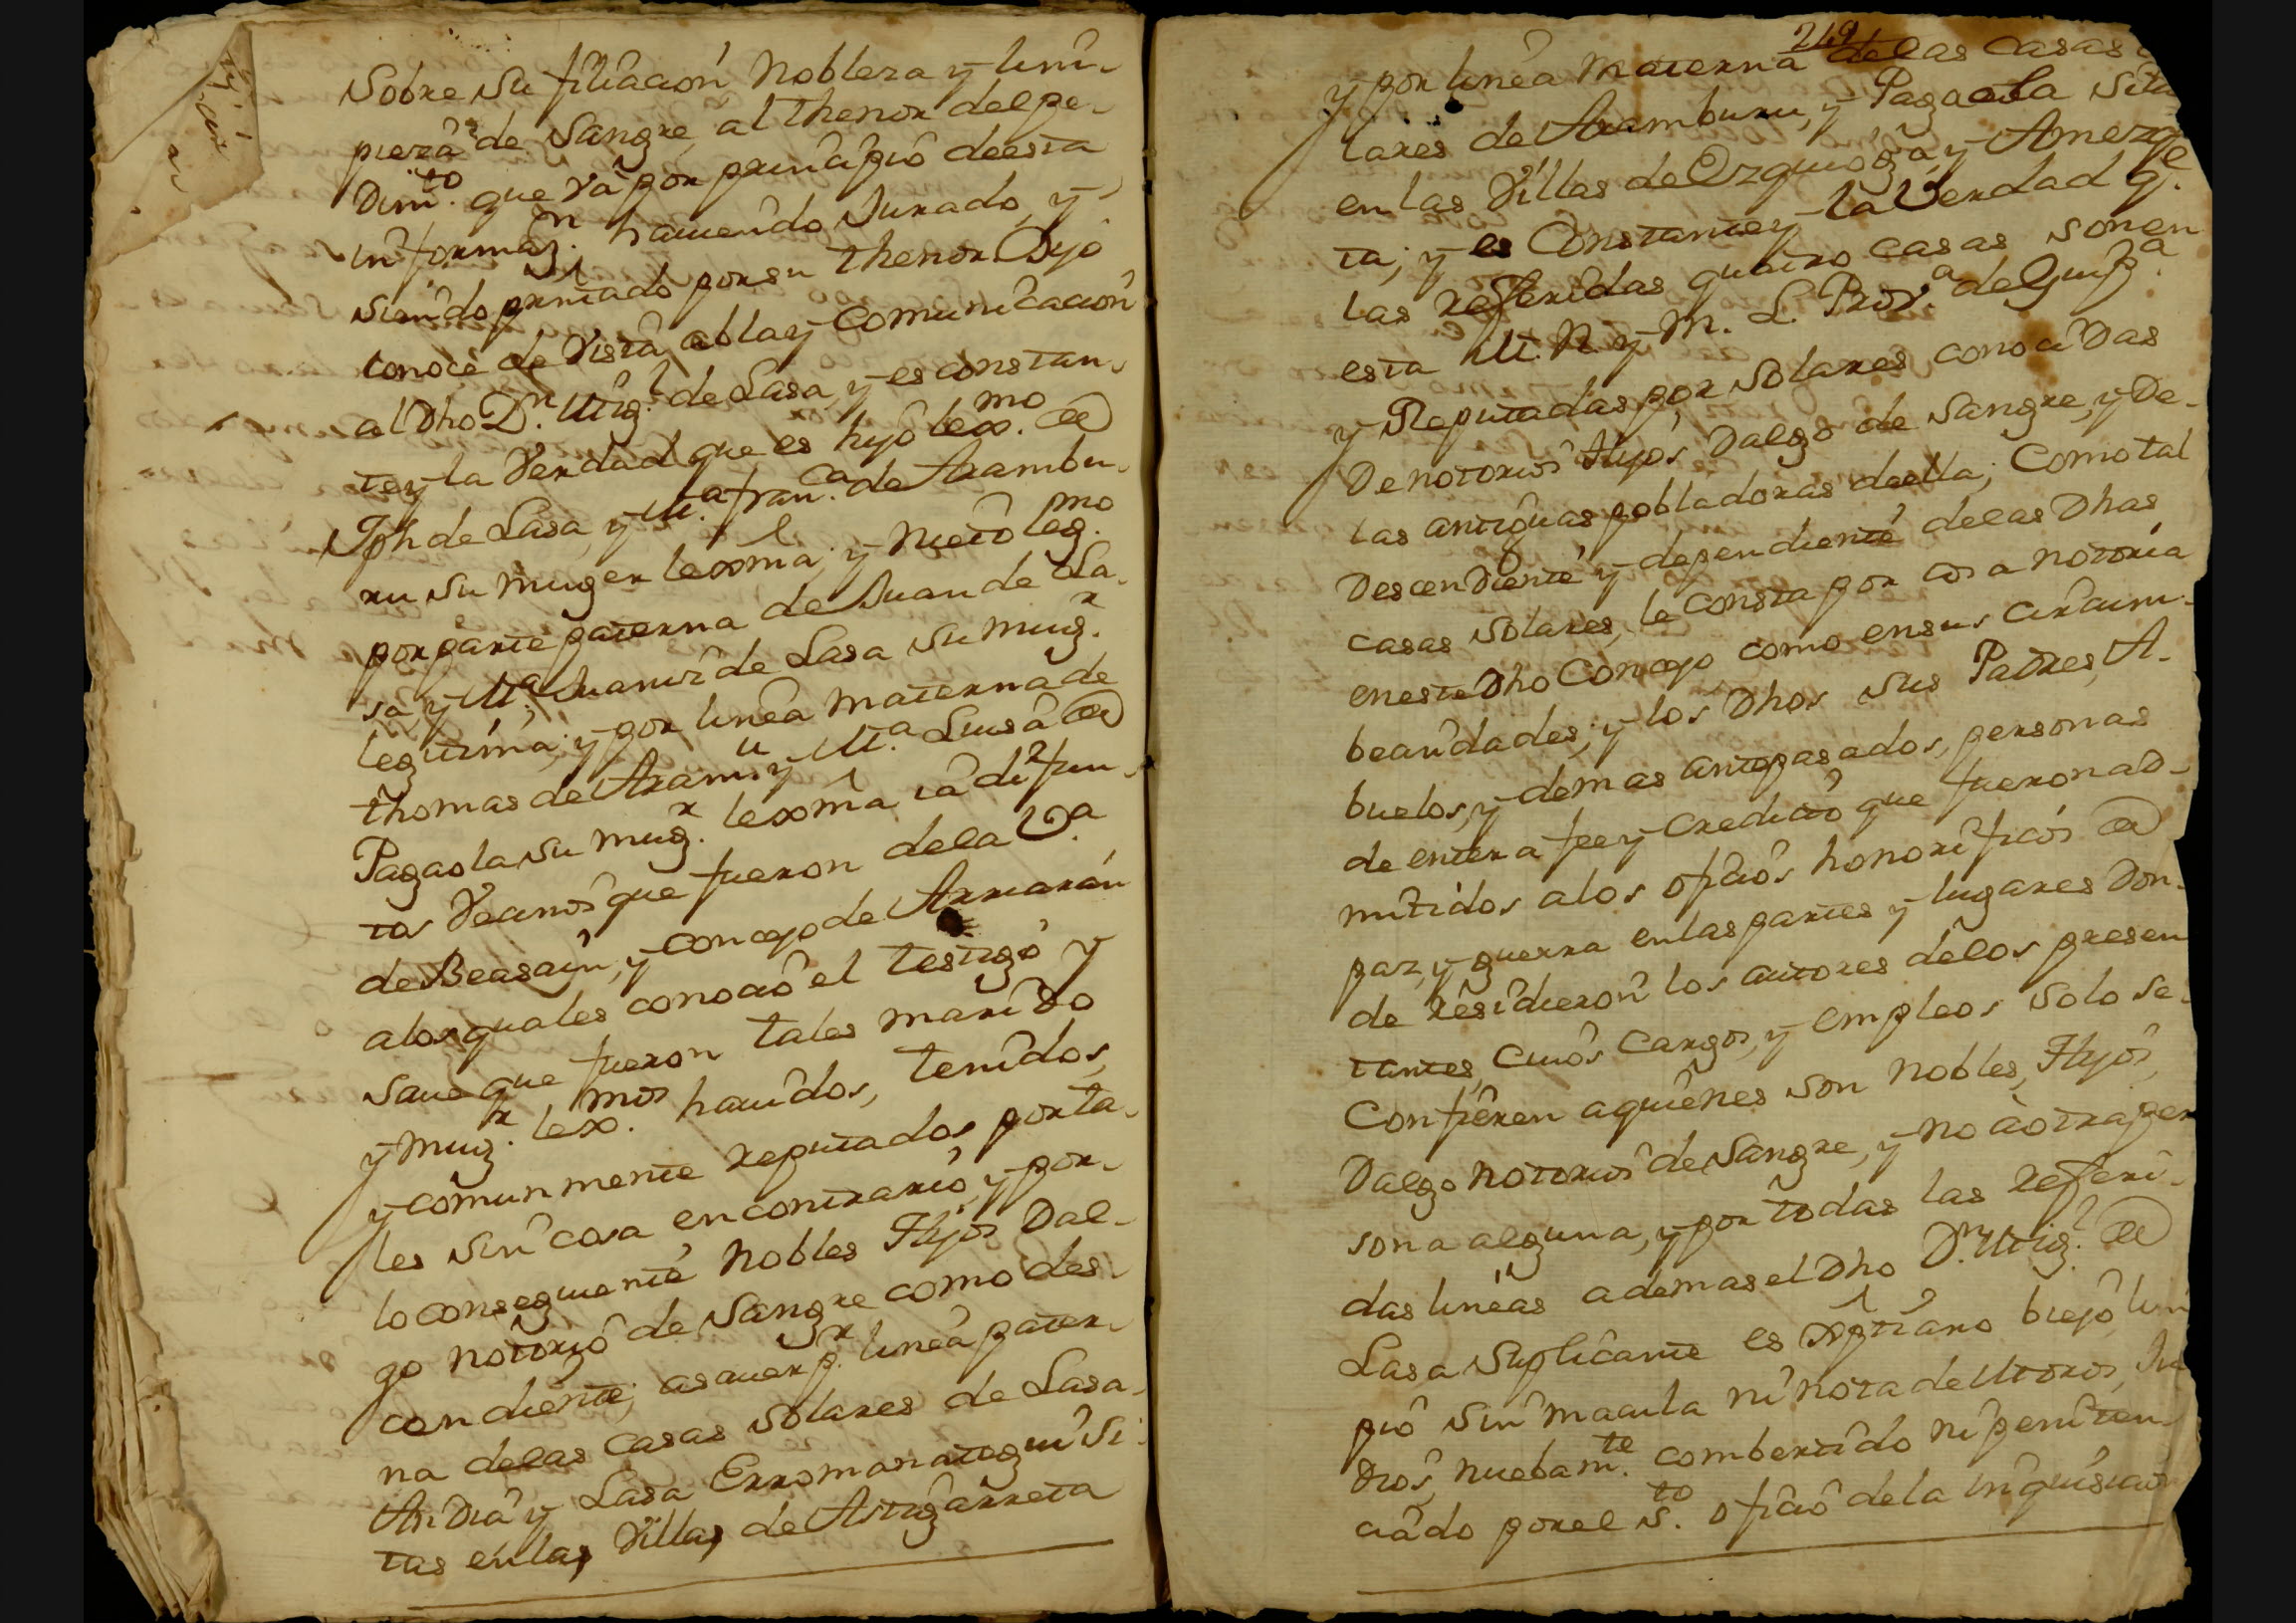 Sobre su filiacion Nobleza y limi-
pieza de Sangre, al thenor del pe-
dim.to que vá por principio de esta
informaz.n haviendo Jurado, y
siendo pregtado por su thenor Dijo
conoce de Vista, abla y Comunicacion
al Dho D.n Mig.l de Lasa, y es constan-
te y la Verdad que es hijo lexmo. de
Jph de Lasa, y M.a fran.ca de Arambu-
ru su muger lexma; y Nieto leg.mo
por parte paterna de Juan de La-
sa, y M.a Juaniz de Lasa su mug.r
legitima; y por linea Materna de
thomas de Aram.u y M.a Luisa de
Pagaola su mug.r lexma, ia difun-
tos Vecinos que fueron de la V.a
de Beasain, y concejo de Arriarán
alos quales conocio el testigo y
save que fueron tales marido
y mug.r lex.mos havidos, tenidos,
y comunmente reputados por ta-
les sin cosa en contrario, y por
lo conseguiente Nobles Hijos Dal-
go Notorio de Sangre como des-
cendiente, asaver p.r linea pater-
na delas Casas Solares de Lasa
Andia y Lasa Erromanategui Si-
tas en las Villas de Astigarreta
249
y por linea Materna delas Casas
lares de Aramburu, y Pagaola Sita
en las Villas de Ezquioga, y Amezqe
ta; y es Constante y la Verdad q.e
las referidas quatro casas son en
esta M. N. y M. L. Prov.a de Guip.a
y Reputadas por Solares conocidas
De notorios Hijos Dalgo de Sangre, y De
las antiguas pobladoras de ella; Como tal
Descendiente y dependiente delas Dhas
casas Solares, le consta por cosa notoria
en este Dho Concejo como en sus circum-
beandades; y los Dhos sus Padres, A-
buelos, y demas antepasados, personas
de entera fee y Credito que fueron ad-
mitidos alos oficios honorificos de
paz, y guerra en las partes y lugares Don-
de residieron los autores de los presen
tantes, Cuios Cargos, y empleos solo se
Confieren a quienes son Nobles, Hijos,
Dalgo Notorios de Sangre, y no à otra per
sona alguna, y por todas las referi-
das lineas ademas el Dho D.n Mig.l de
Lasa Suplicante es Xptiano biejo lim
pio sin macula ni nota de Moros, Ju
dios, nuebam.te combertido ni peniten-
ciado por el S.to oficio de la Inquisicion